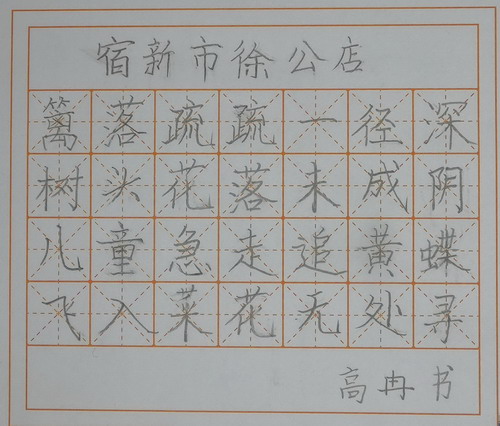 宿新市徐公店
篱落疏疏一径深
树头花落未成阴
儿童急走追黄蝶
飞入菜花无处寻
高冉书